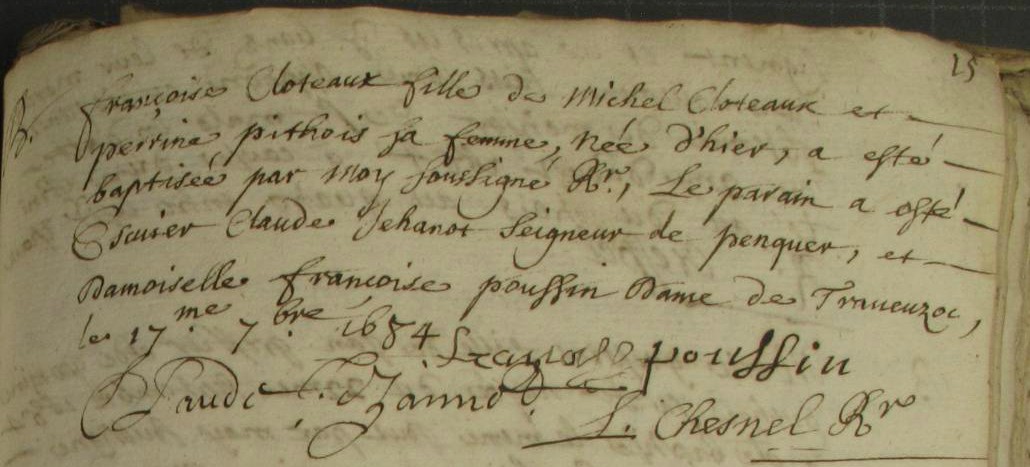 25
B. françoise Cloteaux fille de Michel Cloteaux et
perrine pithois sa femme, Née d'hier, a esté
baptisée par Moy soussigné Rr, Le parain a esté
Escuier Claude Jehanot Seigneur de penquer, et
Damoiselle françoise poussin Dame de
le 17me 7bre 1684 françoise poussin
Claude
L. Chesnel Rr